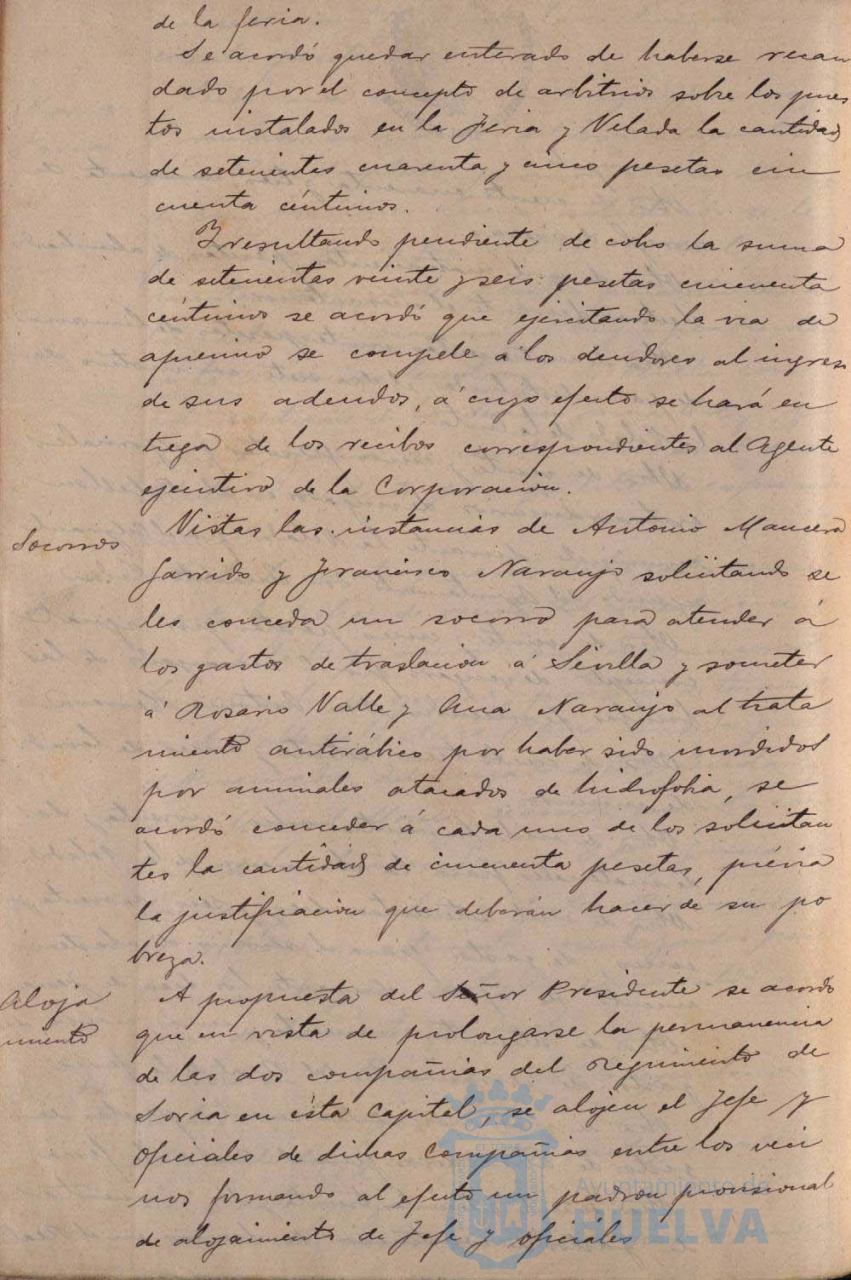 de la feria.
Se acordó quedar enterado de haberse recau
dado por el concepto de arbitrios sobre los pues
tos instalados en la Feria y Velada la cantidad
de setecientas cuarenta y cinco pesetas cin
cuenta céntimos.
Y resultando pendiente de cobro la suma
de setecientas veinte y seis pesetas cincuenta
céntimos se acordó que ejercitando la via de
apremio se compele á los deudores al ingreso
de sus adeudos, á cuyo efecto se hará en
trega de los recibos correspondientes al Agente
ejecutivo de la Corporacion.
Socorros
Vistas las instancias de Antonio Mancera
Garrido y Francisco Naranjo solicitando se
les conceda un socorro para atender á
los gastos de traslacion á Sevilla y someter
á Rosario Valle y Ana Naranjo al trata
miento antirábico por haber sido mordidos
por animales atacados de hidrofobia, se
acordó conceder á cada uno de los solicitan
tes la cantidad de cincuenta pesetas, prévia
la justificacion que deberán hacer de su po
breza.
Aloja
miento
A propuesta del Señor Presidente se acordó
que en vista de prolongarse la permanencia
de las dos compañias del Regimiento de
Soria en ésta Capital, se alojen el Jefe y
oficiales de dichas compañias entre los veci
nos formando al efecto un padron provisional
de alojamiento de Jefe y oficiales
Ayuntamiento de
HUELVA